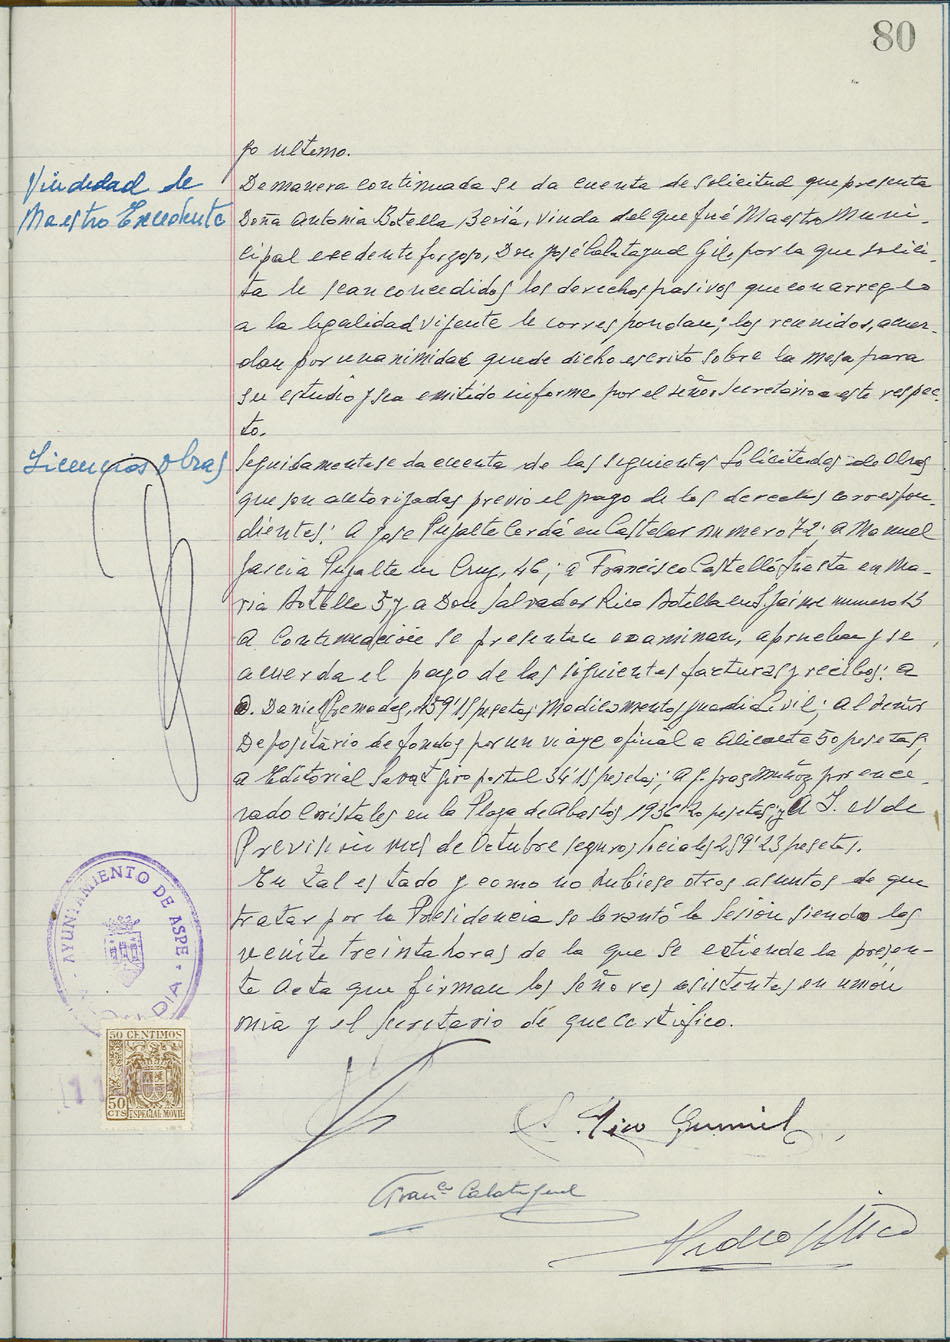 80
po ultimo.
Viudedad de
Maestro Excedente
De manera continuada se da cuenta de solicitud que presenta
Doña Antonia Botella Beviá, viuda del que fué Maestro Muni-
cipal excedente forzoso, Don José Calatayud Gil, por la que solici-
ta le sean concedidos los derechos pasivos que con arreglo
a la legalidad vigente le correspondan; los reunidos, acuer-
dan por unanimidad quede dicho escrito sobre la mesa para
su estudio y sea emitido informe por el señor Secretario a este respec-
to.
Licencias obras
Seguidamente se da cuenta de las siguientes Solicitudes de Obras
que son autorizadas previo el pago de los derechos correspon-
dientes: A Jose Pujalte Cerdá en Castelar numero 72: a Manuel
Garcia Pujalte en Cruz, 46; a Francisco Castelló en Ma-
ria Botella 5 y a Don Salvador Rico Botella en S. Jaime numero 13
A continuación se presentan examinan, aprueban y se
acuerda el pago de las siguientes facturas y recibos: a
D. Daniel Cremades, 159'15 pesetas Medicamentos guardia Civil; Al señor
Depositario de fondos por un viaje oficial a Alicante 50 pesetas;
a Editorial Salvat giro postal 34'15 pesetas; A J. Muñoz por ence-
rado cristales en la Plaza de Abastos 1936'20 pesetas; y A I. N de
Previsión mes de Octubre seguros sociales 259'23 pesetas.
En tal estado y como no hubiese otros asuntos de que
tratar por la Presidencia se levantó la Sesión siendo las
veinte treinta horas de la que se extiende la presen-
te Acta que firman los señores asistentes en union
mia y el Secretario de que certifico.
AYUNTAMIENTO DE ASPE
50 CENTIMOS
50
CTS
ESPECIAL MOVIL
Franco. Calatayud